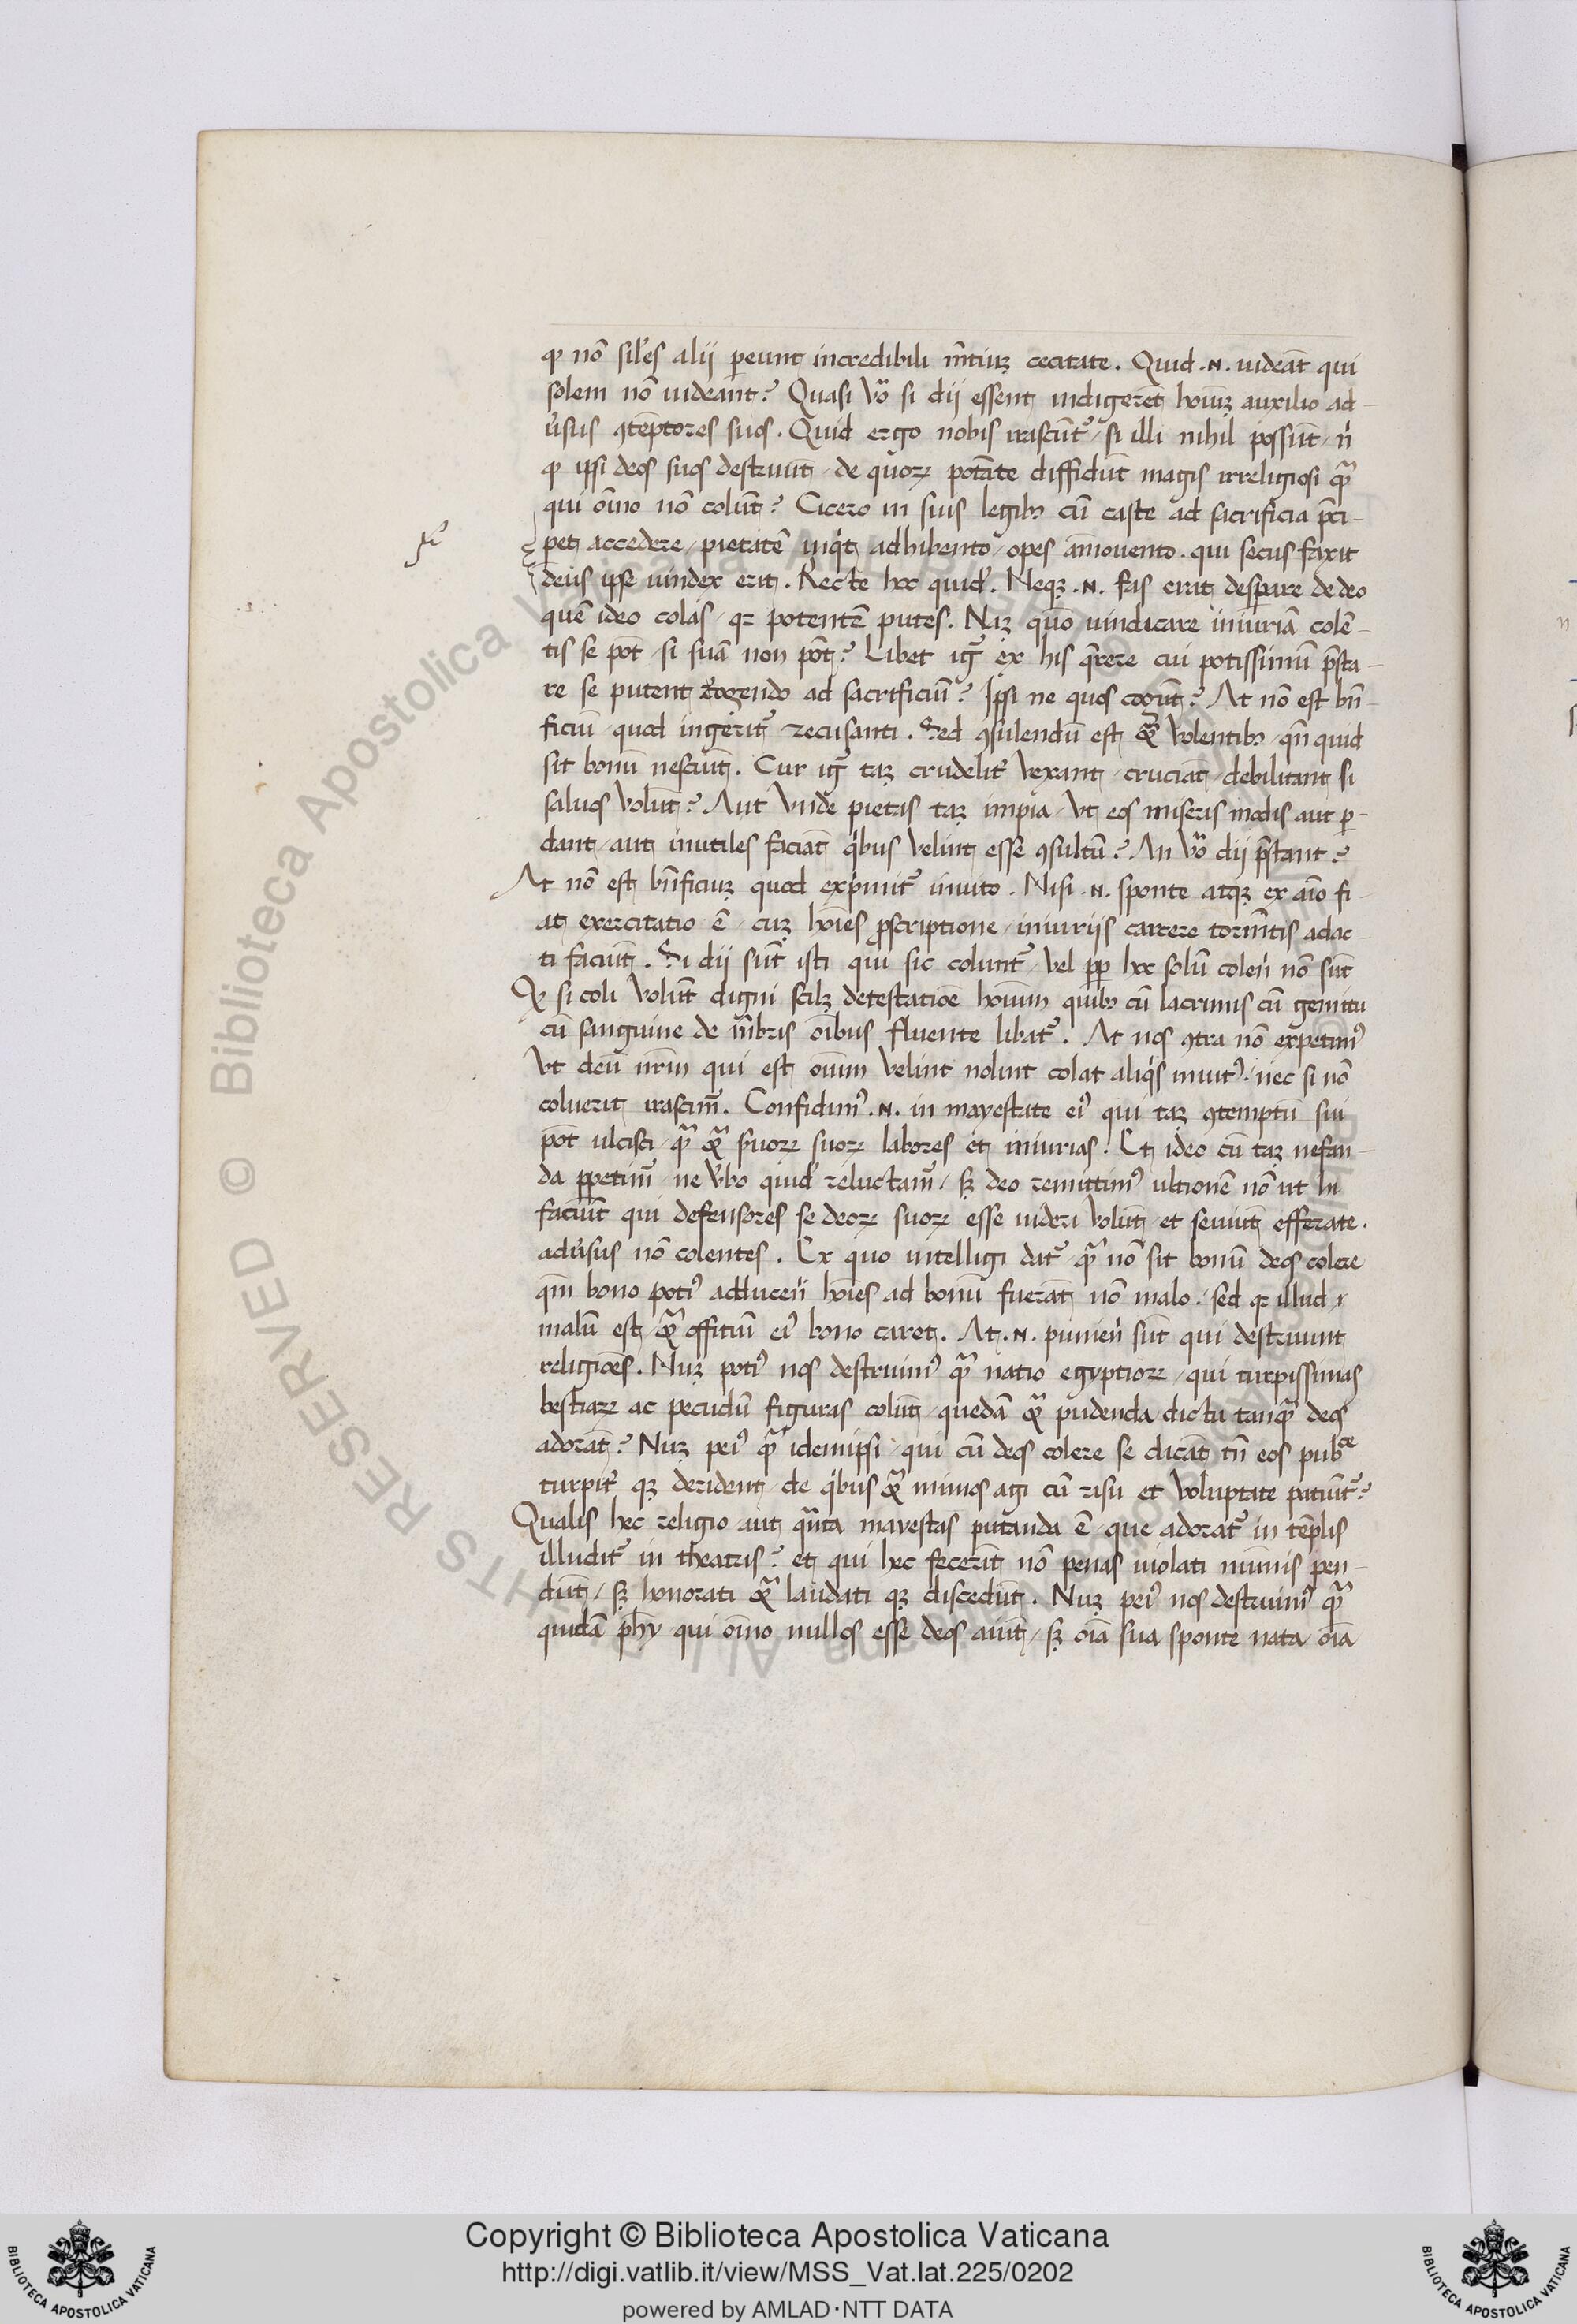 ꝙ nō siles alij pereunt incredibili mẽtiuꝫ cecitate. Quid .N. uideāt qui
solem nō uideant? Quasi vͦo si dij essent indigerēt hoīuꝫ auxilio ad-
uersus ꝯtēptores suos. Quid ergo nobis irascūtᷣ / si illi nihil possūt / nͥ
ꝙ ipsi deos suos destruūt / de quoꝝ potāte diffidūt magis irreligiosi qᷓ
qui oīno nō colūt? Cicero in suis legibꝫ cū caste ad sacrificia p̄ci-
pet accedere / pietatē inqͥt adhibento / opes am̄ouento. qui secus faxit
deus ipse uindex erit. Recte hoc quid᷒. Neqꝫ .N. fas erat desperare de deo
quē ideo colas / qꝛ potentē putes. Naꝫ quō uindicare iniuriā colē-
tis se pōt / si suā non pōt? Libet igᷓ ex his q̄rere cui potissimū p̄sta-
re se putent cogendo ad sacrificiū? Ipsi ne quos cogūt? At nō est bn̄-
ficiū / quod ingeritᷣ recusanti. Sed ꝯsulendū est volentibꝫ / qn̄ quid
sit bonū nesciūt. Cur igᷓ taꝫ crudelitᷣ vexant / cruciāt / debilitant si
saluos volūt? Aut vnde pietas taꝫ impia / vt eos miseris modis aut ꝑ-
dant / aut inutiles faciāt qͥbus velint esse ꝯsultū? An vͦo dij p̄stant?
At nō est bn̄ficiuꝫ quod exprimitᷣ inuito. Nisi .N. sponte atqꝫ ex aīo fi-
at exercitatio ē / cuꝫ hoīes ꝓscriptione / iniurijs carcere tormētis adac-
ti faciūt. Si dij sūt isti qui sic coluntᷣ / vel ꝓꝑ hoc solū colen̄ nō sūt
Qꝫ si coli volūt digni scilꝫ detestatiōe hoīum quibꝫ cū lacrimis cū gemitu
cū sanguine de mēbris oībus fluente libatᷣ. At nos ꝯtra nō expetimꝰ
vt deū nr̄m qui est oīum velint nolint colat aliqͥs inuitꝰ. nec si nō
coluerit irascimᷣ. Confidimꝰ .N. in mayestate eiꝰ qui taꝫ ꝯtemptū sui
pōt ulcisci / qᷓ seruoꝝ suoꝝ labores et iniurias. Et ideo cū taꝫ nefan-
da ꝑpetimᷣ / ne verbo quid᷒ reluctamᷣ / sꝫ deo remittimꝰ ultionē nō ut hi
faciūt qui defensores se deoꝝ suoꝝ esse uideri volūt / et seuiūt efferate.
aduersus nō colentes. Ex quo intelligi datᷣ / qᷓ nō sit bonū deos colere
qm̄ bono potiꝰ adducen̄ hoīes ad bonū fuerāt / nō malo. sed qꝛ illud
malū est / offitiū eiꝰ bono caret. At .N. punien̄ sūt qui destruunt
religiōes. Nuꝫ potiꝰ nos destruimꝰ qᷓ natio egyptioꝝ / qui turpissimas
bestiaꝝ ac pecudū figuras colūt / quedā pudenda dictu tanqᷓ deos
adorāt? Nuꝫ peiꝰ qᷓ idemipsi / qui cū deos colere se dicāt / tn̄ eos pubᶜᵉ
turpitᷣ qꝫ derident / de qͥbus mimos agi cū risu et voluptate patiūtᷣ?
Qualis hec religio aut qᷓnta mayestas putanda ē / que adoratᷣ in tēplis
illuditᷣ in theatris? et qui hec fecerīt nō penas uiolati numīs pen-
dūt / sꝫ honorati laudati qꝫ discedūt. Nuꝫ peiꝰ nos destruimꝰ qᷓ
quidā phy qui oīno nullos esse deos aiūt / sꝫ oīa sua sponte nata / oīa
Copyright © Biblioteca Apostolica Vaticana
http://digi.vatlib.it/view/MSS_Vat.lat.225/0202
powered by AMLAD·NTT DATA